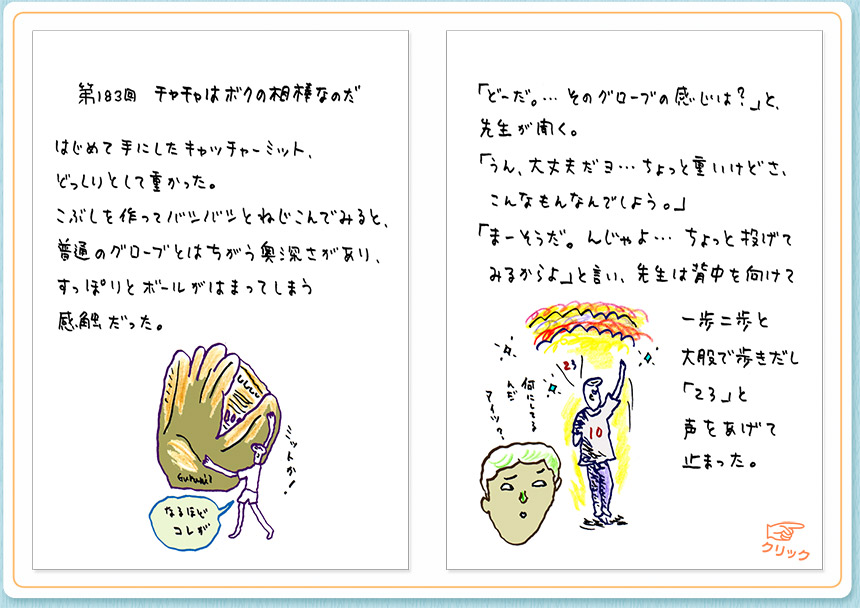 第183回 チャチャはボクの相棒なのだ
はじめて手にしたキャッチャーミット、
どっしりとして重かった。
こぶしを作ってバシバシとねじこんでみると、
普通のグローブとはちがう奥深さがあり、
すっぽりとボールがはまってしまう
感触だった。
ミットか!
なるほど
コレが
「どーだ。…そのグローブの感じは?」と、
先生が聞く。
「うん、大丈夫だヨ…ちょっと重いけどさ、
こんなもんなんでしよう。」
「まーそうだ。んじゃよ…ちょっと投げて
みるからよ」と言い、先生は背中を向けて
一歩二歩と
大股で歩きだし
「23」と
声をあげて
止まった。
23
10
何にしてる
んだ
アイツ?
クリック